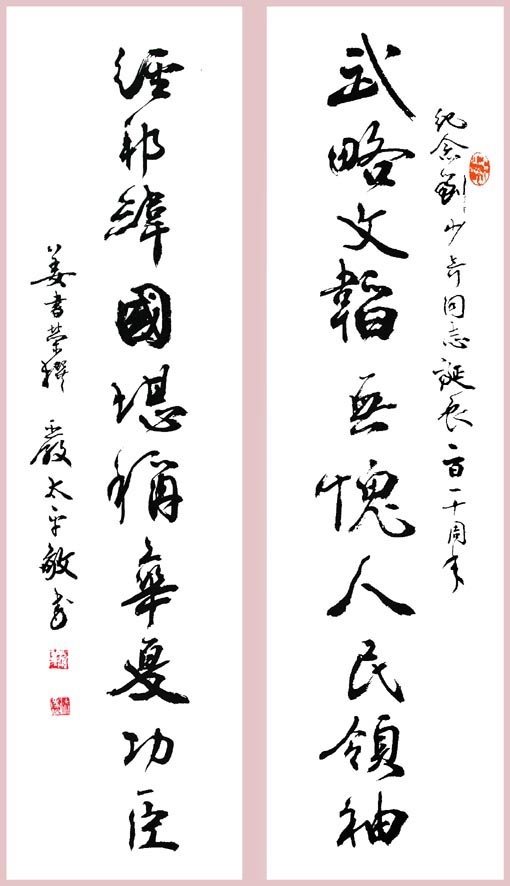 紀念劉少奇同志誕辰一百一十周年
武略文韜無愧人民領袖
經邦緯國堪稱華夏功臣
姜書榮撰 嚴太平敬書